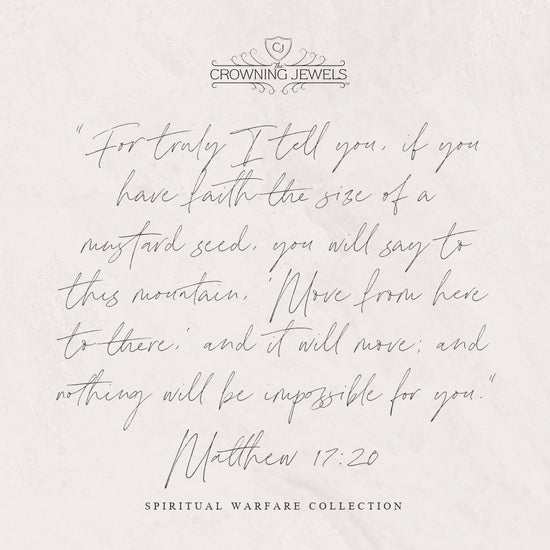 CJ
The
CROWNING JEWELS
"For truly I tell you, if you
have faith the size of a
mustard seed, you will say to
this mountain, 'Move from here
to there,' and it will move; and
nothing will be impossible for you."
Matthew 17:20
SPIRITUAL WARFARE COLLECTION